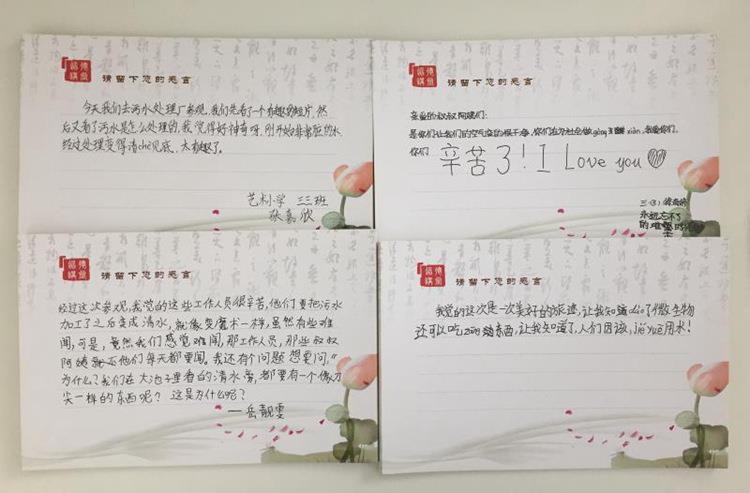 请留下您的感言
今天我们去污水处理厂参观,我们先看了一个有趣的短片,然
后又看了污水是怎么处理的,我觉得好神奇呀,刚开始非常脏的水
经过处理变得清chè见底,太有趣了。
艺术小学 三三班
张嘉欣
请留下您的感言
亲爱的叔叔阿姨们:
是你们让我们的空气变的很干净,你们在为社会做gòng xiàn,我爱你们。
你们 辛苦了!I Love you
三·(3)
永远忘不了
的难
请留下您的感言
经过这次参观,我觉的这些工作人员很辛苦,他们要把污水
加工了之后变成清水,就像变魔术一样,虽然有些难
闻,可是,竟然我们感觉难闻,那工作人员,那些叔叔
阿姨他们每天都要闻。我还有个问题想要问,“
为什么?我们在大池子里看的清水旁,都要有一个像刀
尖一样的东西呢? 这是为什么呢?
——岳靓雯
请留下您的感言
我觉的这次是一次美好的旅途,让我知道dào了微生物
还可以吃zāng东西,让我知道了,人们因该,jié yuē用水!